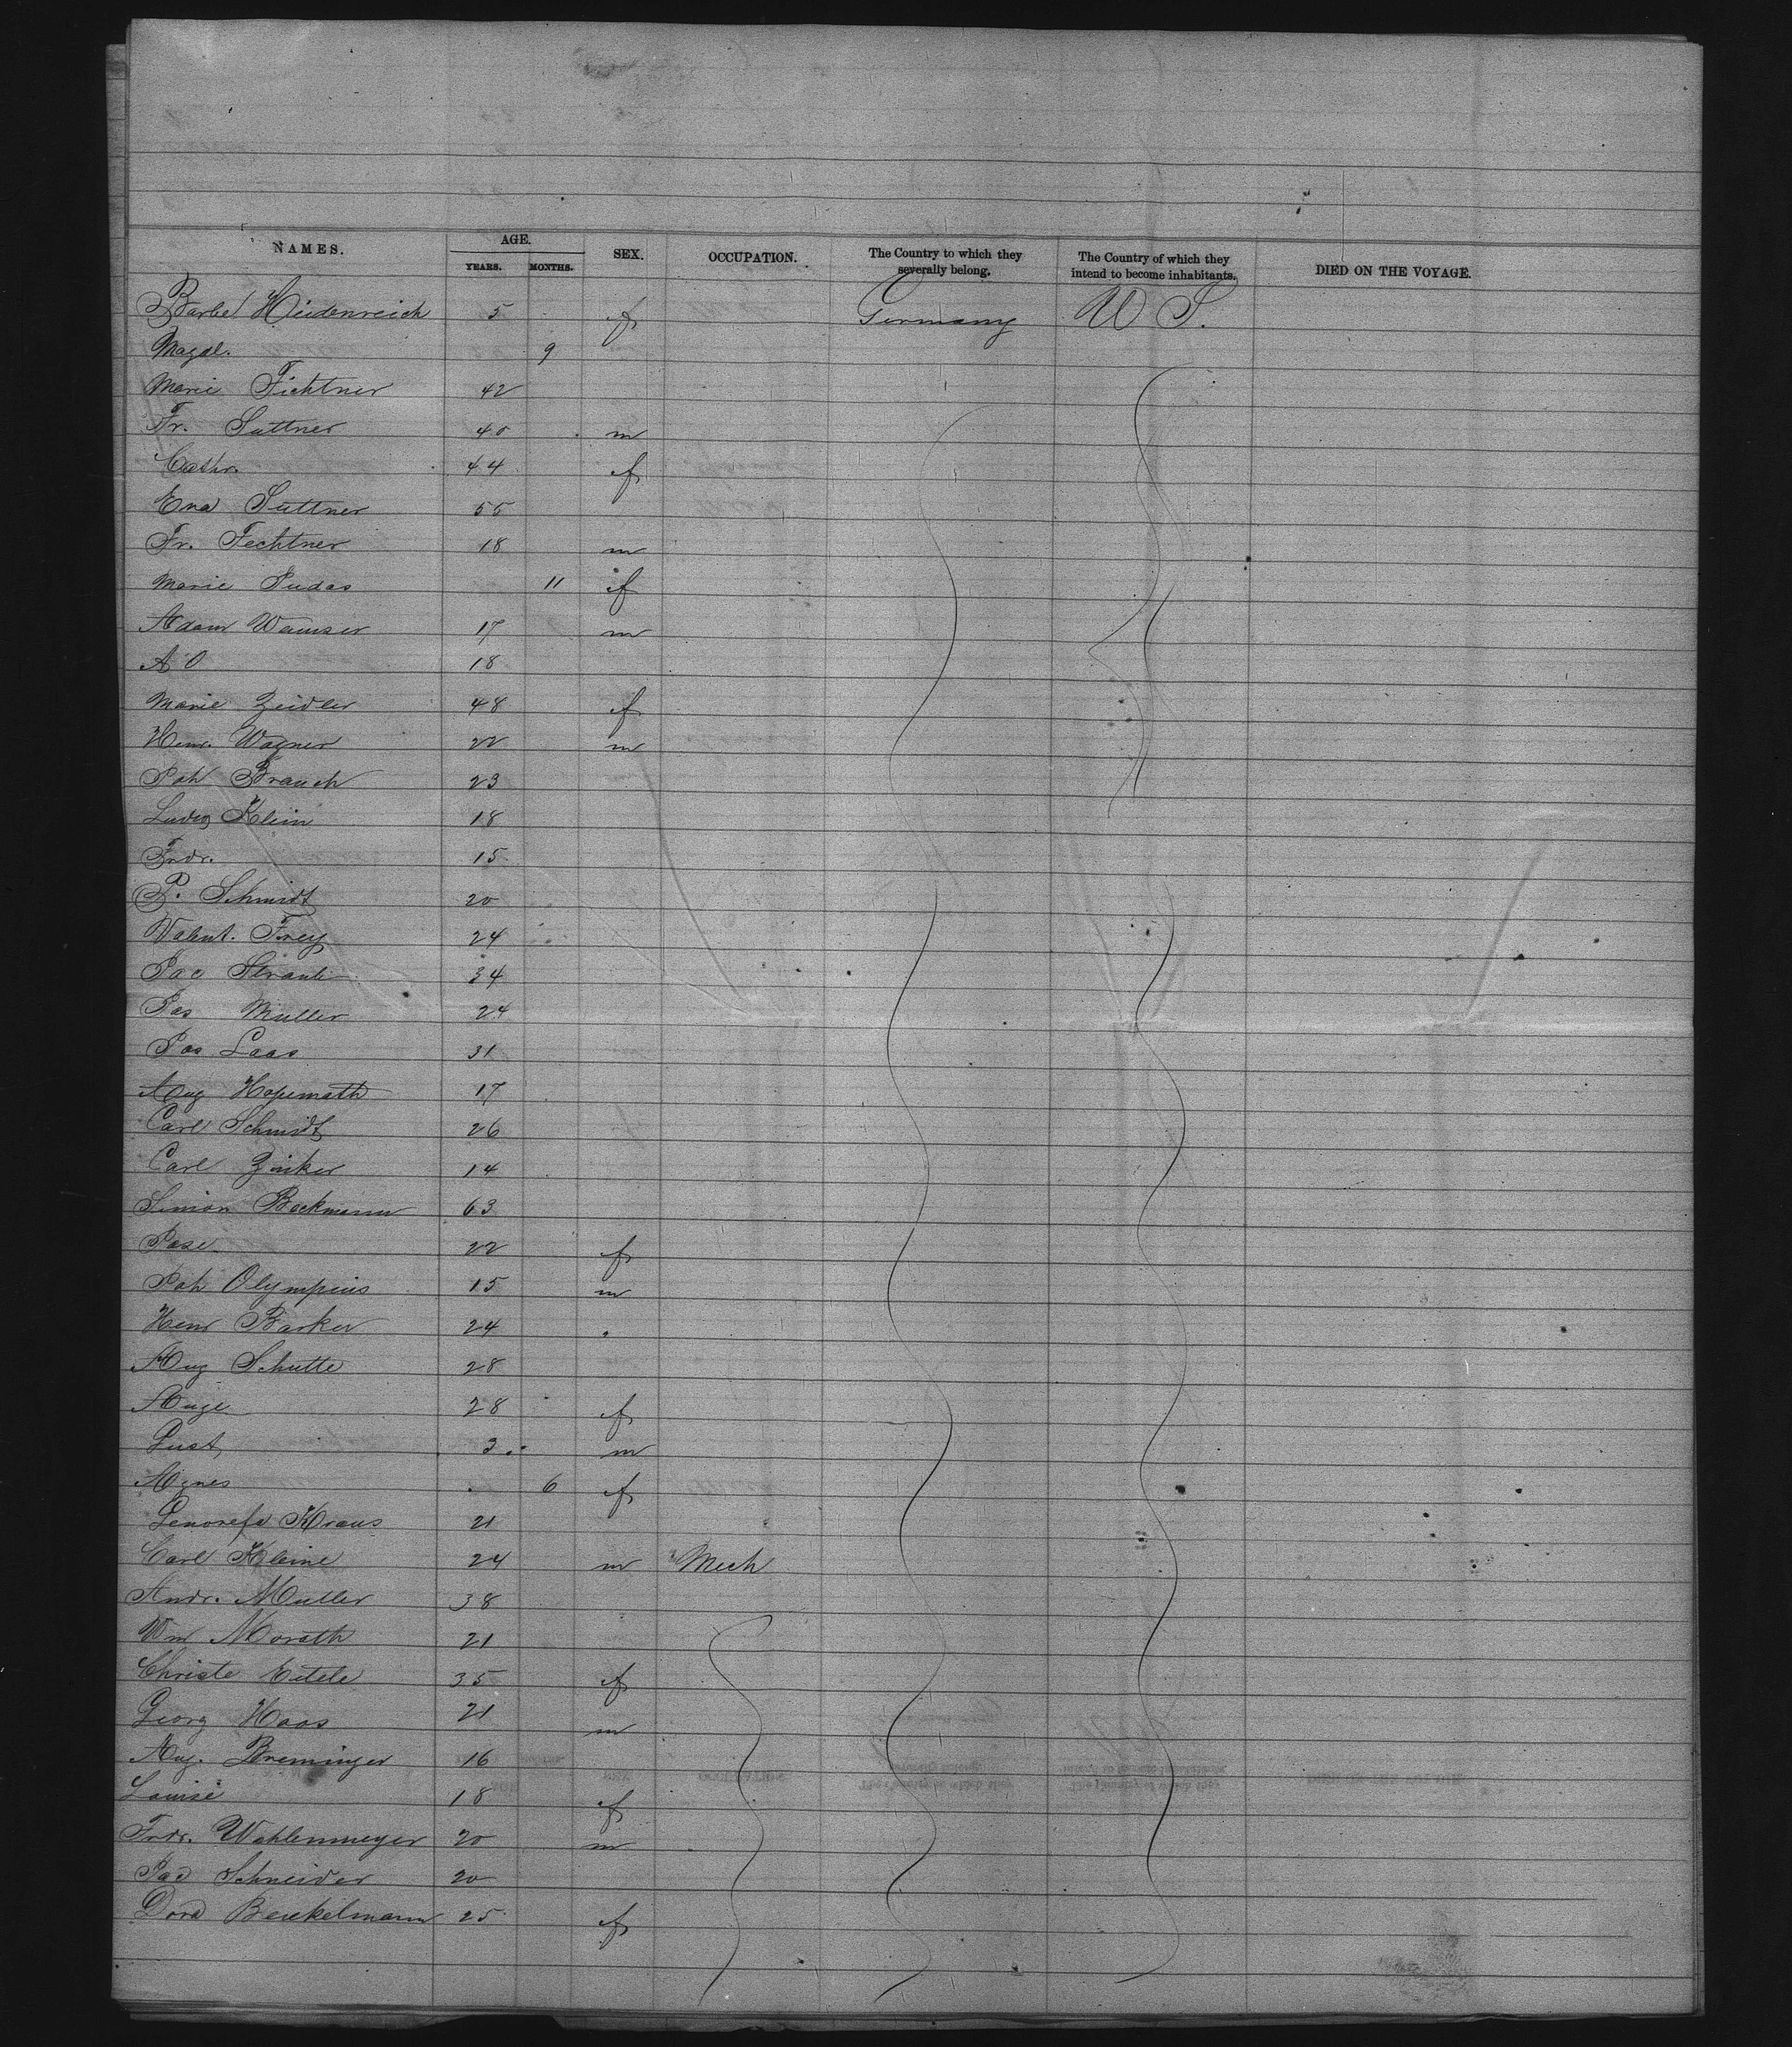 NAMES. AGE. YEARS. MONTHS. SEX. OCCUPATION. The Country to which they severally belong. The Country of which they intend to become inhabitants. DIED ON THE VOYAGE.
Barbel Heidenreich 5 f Germany U S.
Magdl. 9
Marie Fichtner 42
Fr. Suttner 40 m
Cathr. 44 f
Eva Suttner 55
Fr. Fechtner 18 m
Marie Judas 11 f
Adam Wamser 17 m
A O 18
Marie Zeidler 48 f
Henr. Wagner 22 m
Joh Brauch 23
Ludwg Klein 18
Frdr. 15
P. Schmidt 20
Valent. Frey 24
Jac Straub 34
Jas Muller 24
Jos Laas 31
Aug 17
Carl Schmidt 26
Carl Zinker 14
Simon Bockmann 63
Jose 22 f
Joh Olympius 15 m
Henr Barker 24
Aug Schutte 28
Auge 28 f
Gust 3 m
Agnes 6 f
Genovefa Kraus 21
Carl Kleine 24 m Mech
Andr. Muller 38
Wm Morath 21
Christe Eitele 35 f
Georg Haas 21 m
Aug. Breminger 16
Louise 18 f
Frdr. Wahlenmeyer 20 m
Jac Schneider 20
Dora Benekelmann 25 f